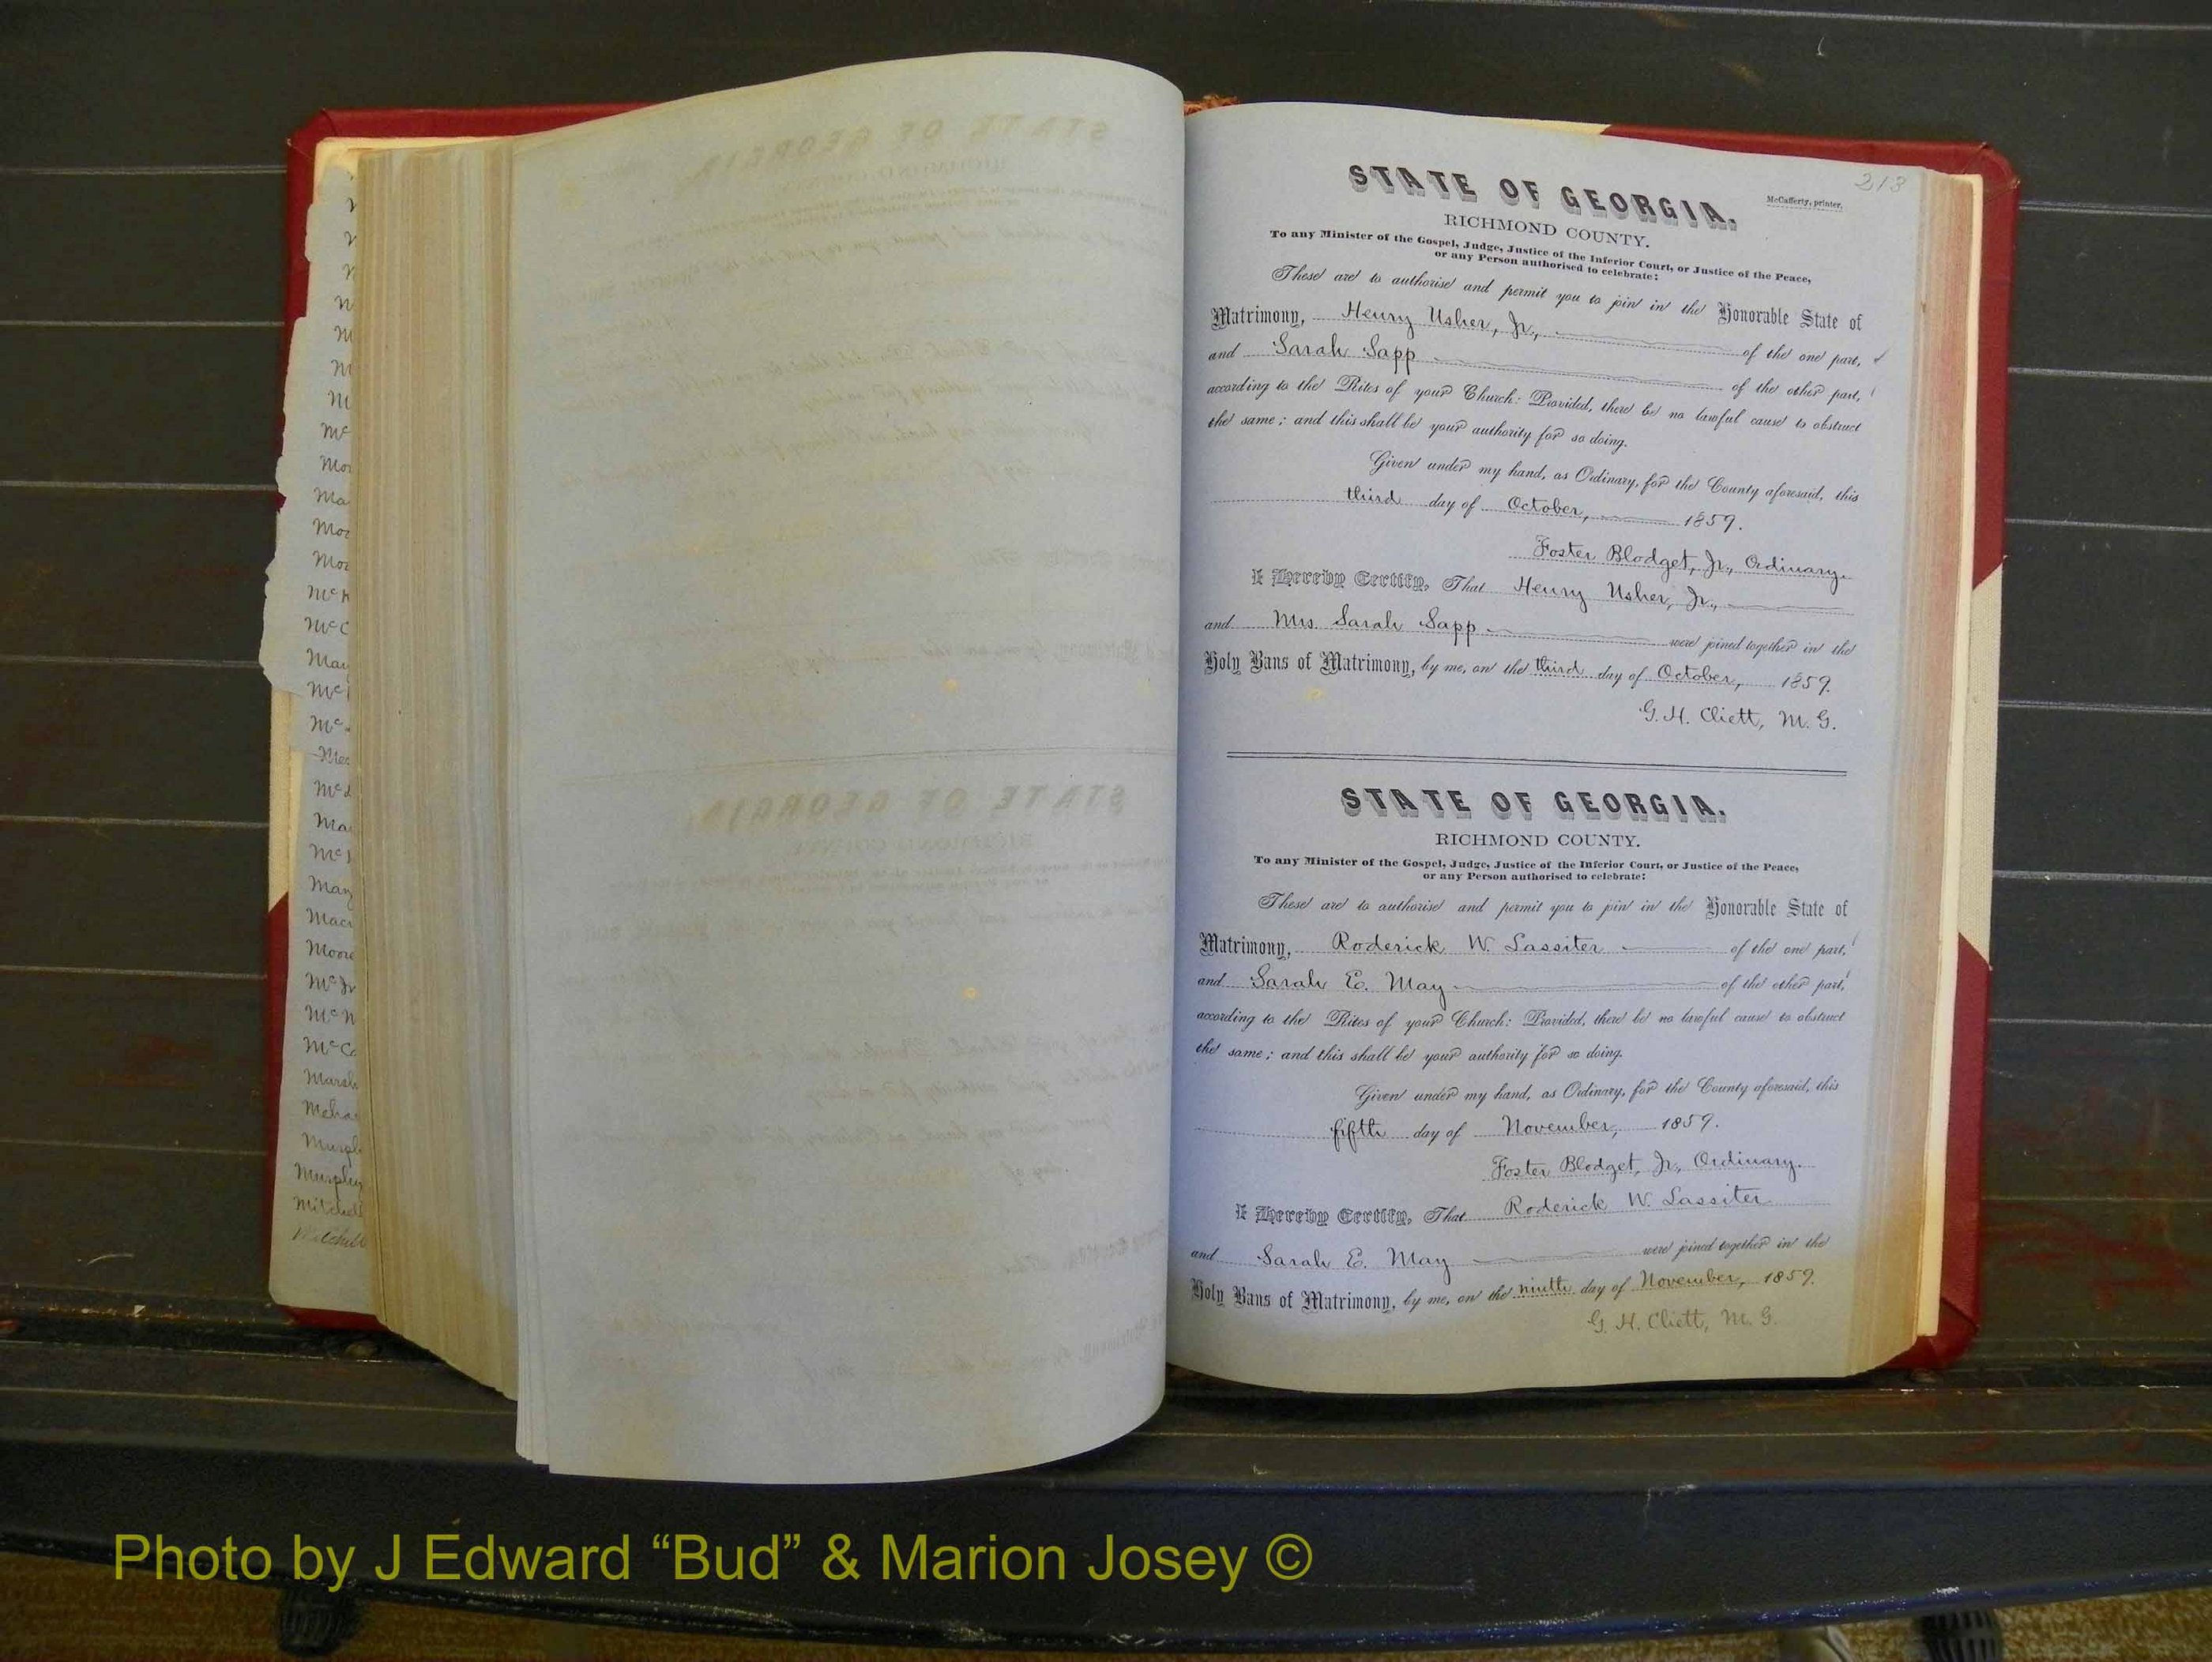 Mc
Mor
Ma
Moo
Moz
McK
McC
May
Mc
Mc
Mc
Ma
Mc
Mary
Mac
Moore
McN
McCo
Marsh
Meha
Murph
Murphy
Mitchell
Mitchell
213
STATE OF GEORGIA.
McCafferty, printer.
RICHMOND COUNTY.
To any Minister of the Gospel, Judge, Justice of the Inferior Court, or Justice of the Peace,
or any Person authorised to celebrate:
These are to authorise and permit you to join in the Honorable State of
Matrimony, Henry Usher, Jr., of the one part,
and Sarah Sapp of the other part,
according to the Rites of your Church: Provided, there be no lawful cause to obstruct
the same; and this shall be your authority for so doing.
Given under my hand, as Ordinary, for the County aforesaid, this
third day of October, 1859.
Foster Blodget, Jr., Ordinary.
I Hereby Certify, That Henry Usher, Jr.,
and Mrs. Sarah Sapp were joined together in the
Holy Bans of Matrimony, by me, on the third day of October, 1859.
G. H. Cliett, M. G.
STATE OF GEORGIA.
RICHMOND COUNTY.
To any Minister of the Gospel, Judge, Justice of the Inferior Court, or Justice of the Peace,
or any Person authorised to celebrate:
These are to authorise and permit you to join in the Honorable State of
Matrimony, Roderick W. Lassiter of the one part,
and Sarah E. May of the other part,
according to the Rites of your Church: Provided, there be no lawful cause to obstruct
the same; and this shall be your authority for so doing.
Given under my hand, as Ordinary, for the County aforesaid, this
fifth day of November, 1859.
Foster Blodget, Jr., Ordinary.
I Hereby Certify, That Roderick W. Lassiter
and Sarah E. May were joined together in the
Holy Bans of Matrimony, by me, on the ninth day of November, 1859.
G. H. Cliett, M. G.
Photo by J Edward “Bud” & Marion Josey ©